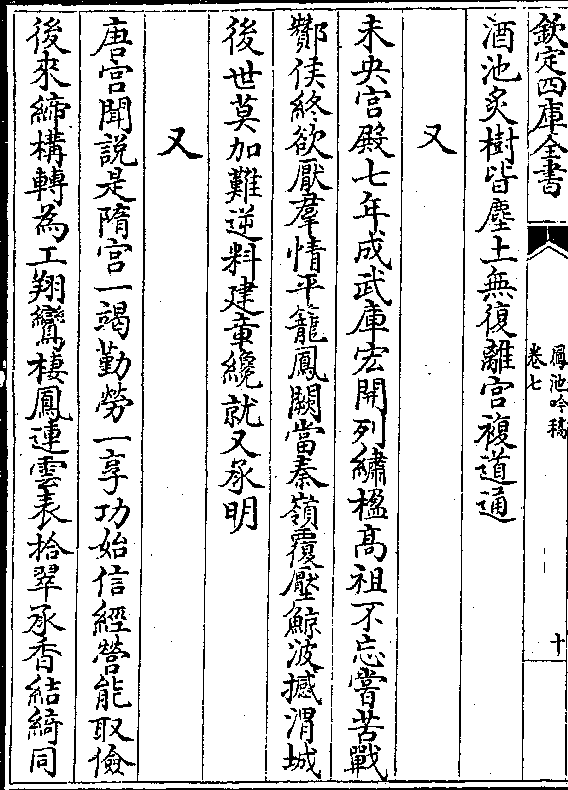 欽定四庫全書
鳳池吟稿
卷七
十
酒池炙樹皆塵土無復離宮複道通
又
未央宮殿七年成武庫宏開列繡楹髙祖不忘嘗苦戰
酇侯終欲厭羣情平籠鳳闕當秦嶺覆壓鯨波撼渭城
後世莫加難逆料建章纔就又承明
又
唐宮聞說是隋宮一竭勤勞一享功始信經營能取儉
後來締構轉為工翔鸞棲鳳連雲表拾翠承香結綺同